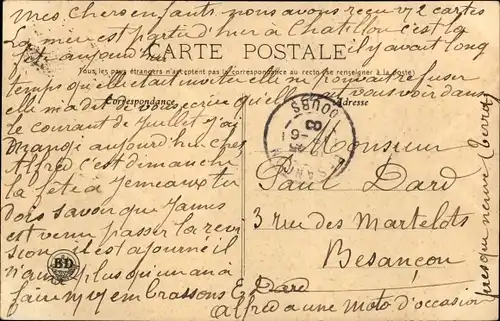 mes chers enfants nous avons reçu vz cartes
La mère est partie hier a Chatillon c'est la
fête aujourd'hui
il y avait long
CARTE POSTALE
Tous les pays étrangers n'acceptent pas la correspondance au recto (se renseigner à la Poste)
temps qu'elle etait invitée elle ne pouvait refuser
elle m'a dit
qu'elle
vous voir dans
Correspondance
Adresse
le courant de Juillet j'ai
mangé aujourd'hui chez
Alfred c'est dimanche
la fête a Jemeaux tu
dois savoir que James
est venu passer la revi
sion il est ajourné il
n'aura plus qu'un an a
faire
embrassons
E Dard
Alfred a une moto d'occasion
presque neuve
DOUBS
Monsieur
Paul Dard
3 rue des Martelots
Besançon
BD